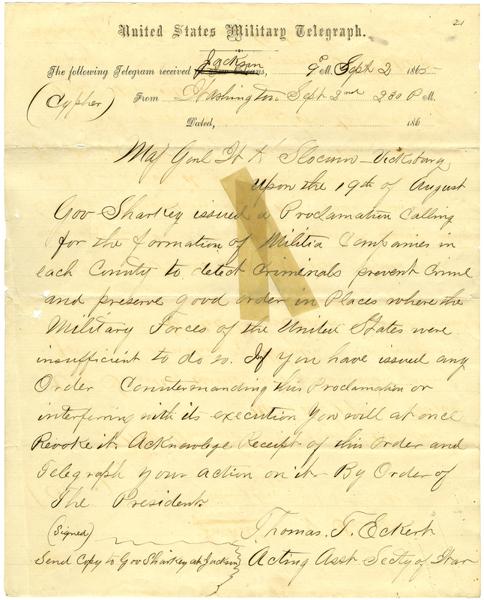 21
United States Military Telegraph.
Jackson
The following Telegram received New Orleans, 9 P M. Sept 2 1865
(Cypher) From Washington Sept 2nd 230 P M.
Dated, 186
Maj Genl H W Slocum - Vicksburg
Upon the 19th of August
Gov Sharkey issued a Proclamation Calling
for the formation of Militia Companies in
each County to detect Criminals prevent Crime
and preserve good order in Places where the
Military Forces of the United States were
insufficient to do so. If you have issued any
Order Countermanding this Proclamation or
interferring with its execution You will at once
Revoke it. Acknowlege Receipt of this Order and
Telegraph your action on it. By Order of
The President
(Signed) Thomas. T. Eckert
Send Copy to Gov Sharkey at Jackson } Acting Asst Secty of War